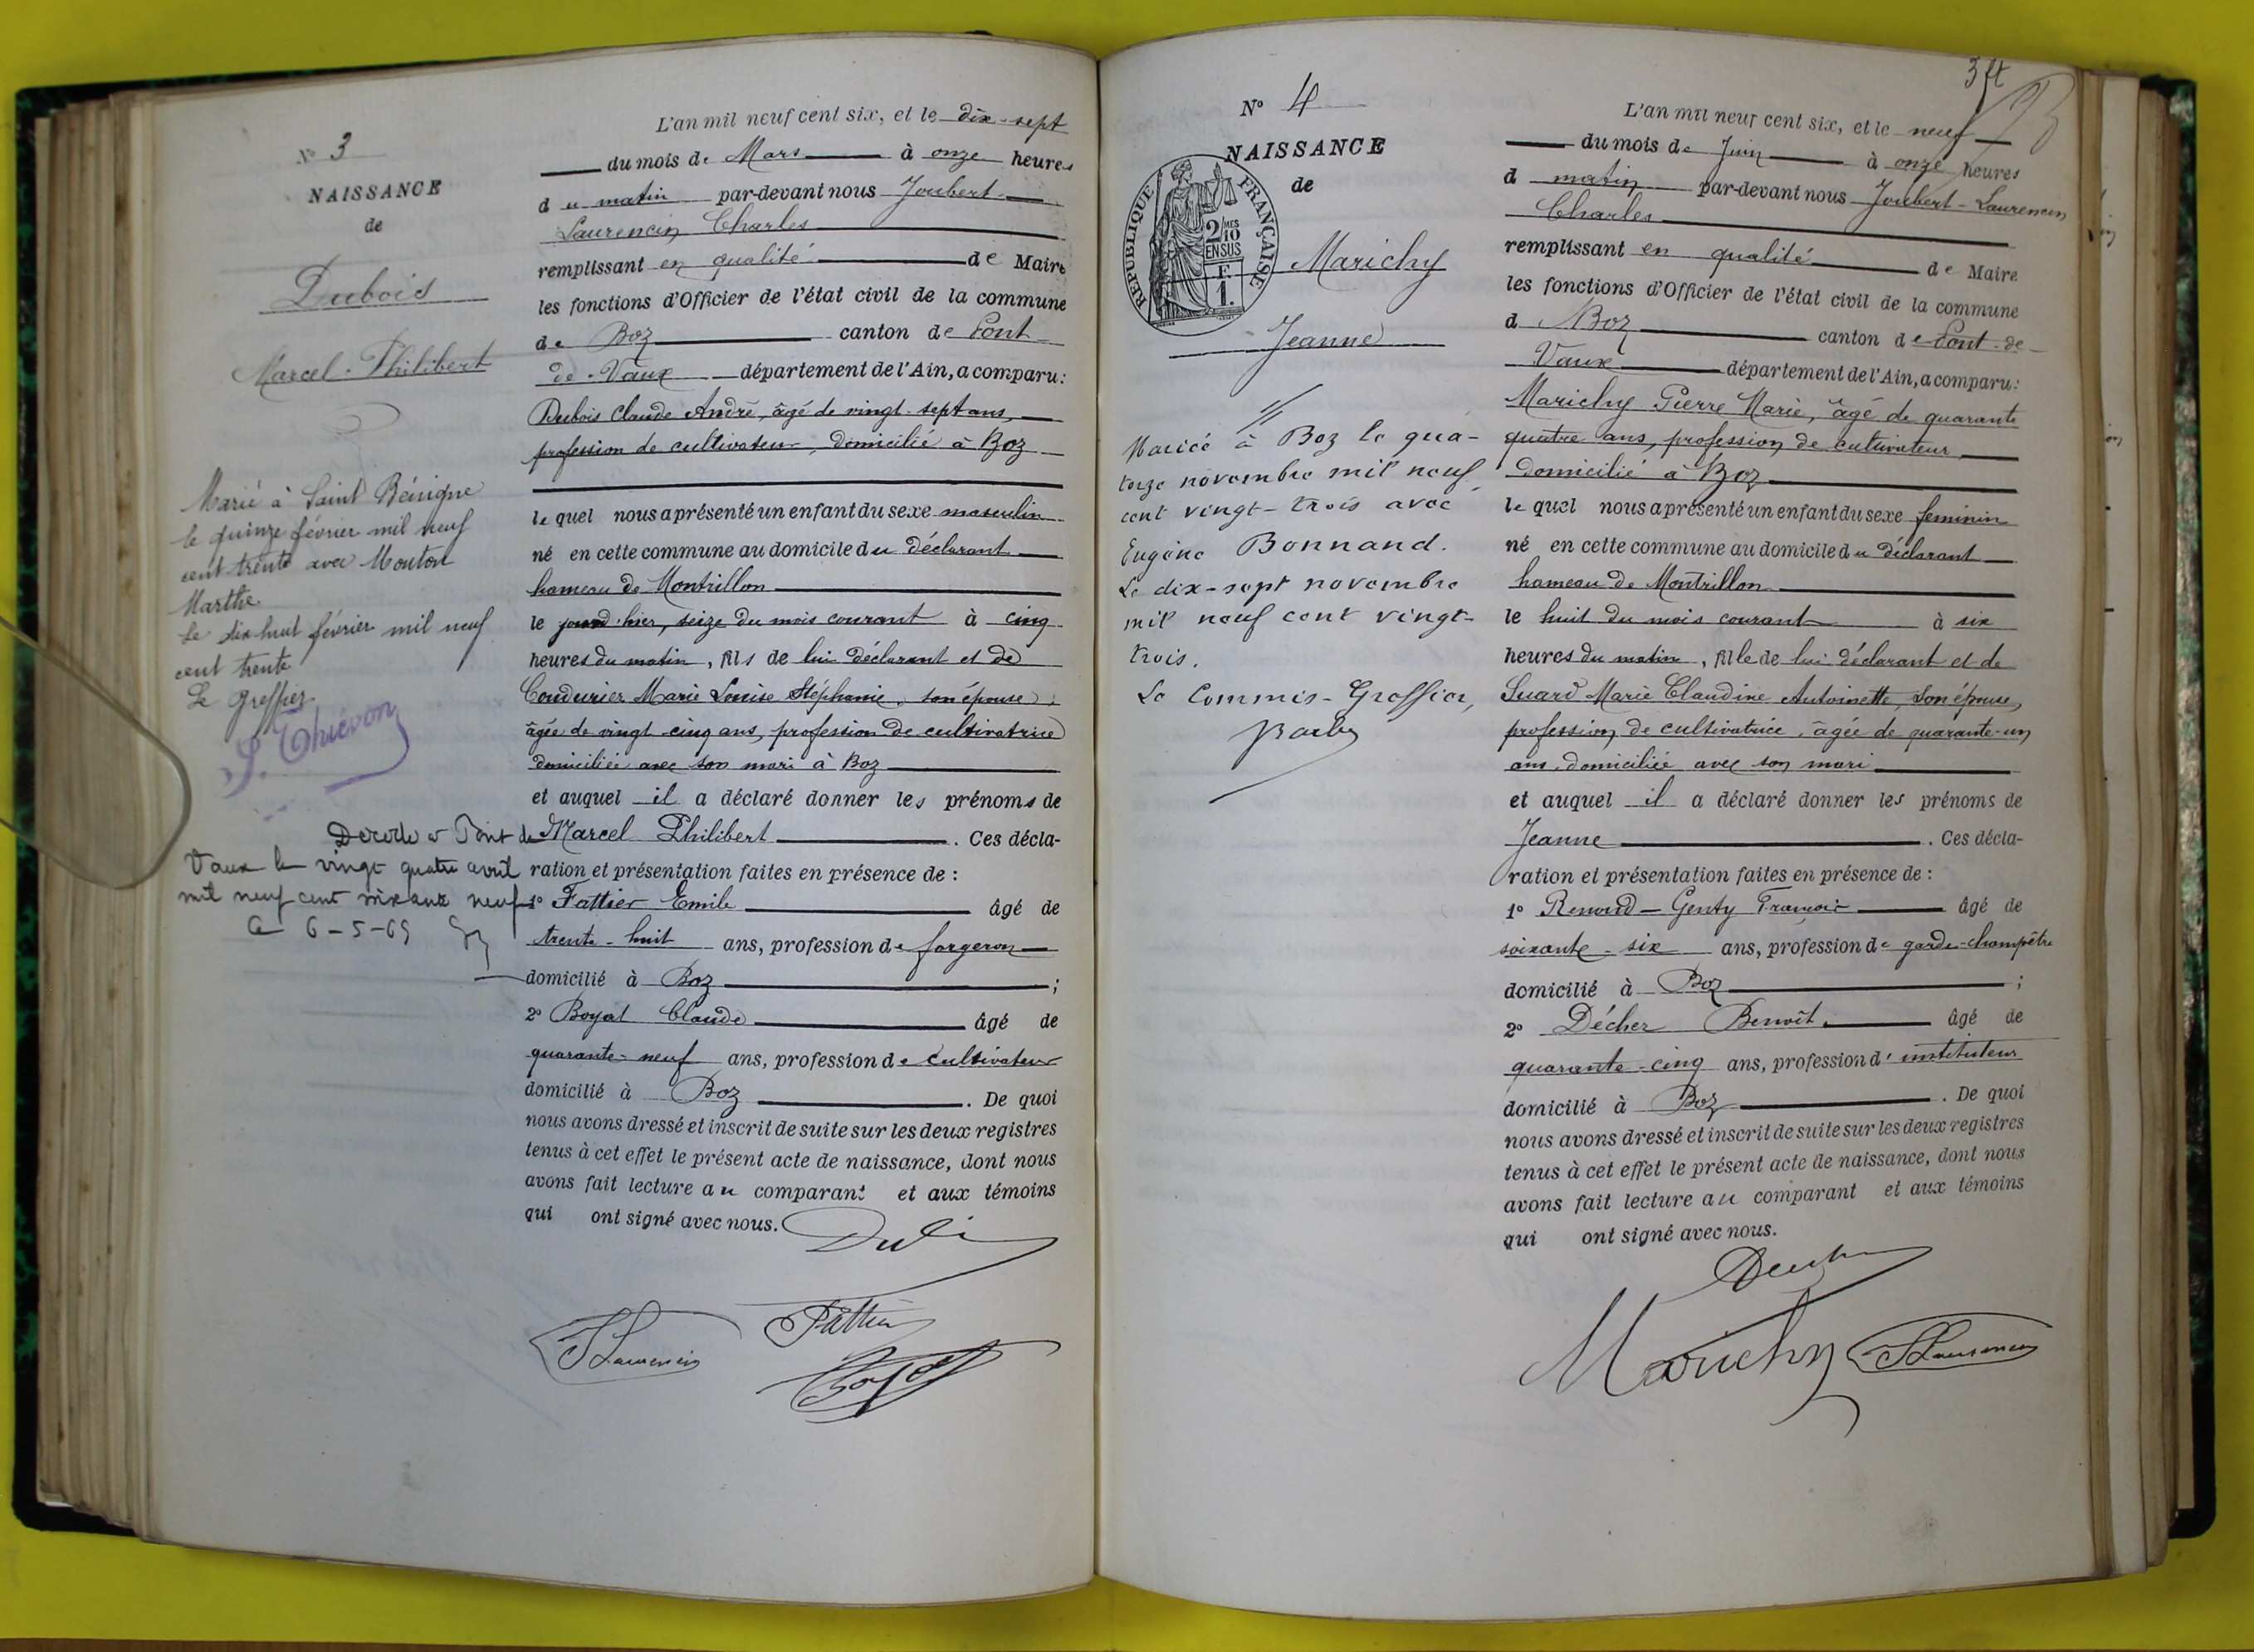 N° 3
NAISSANCE
de
Dubois
Marcel-Philibert
Marié à Saint Bénigne
le quinze février mil neuf
cent trente avec Mouton
Marthe.
Le dix-huit février mil neuf
cent trente
Le Greffier
S. Thiévon
Décédé à Pont de
Vaux le vingt quatre avril
mil neuf cent soixante neuf
6-5-69
L'an mil neuf cent six, et le dix-sept
du mois de Mars à onze heures
du matin par-devant nous Joubert
Laurencin Charles
remplissant en qualité de Maire
les fonctions d'Officier de l'état civil de la commune
de Boz canton de Pont
de-Vaux département de l'Ain, a comparu:
Dubois Claude André, âgé de vingt-sept ans,
profession de cultivateur, domicilié à Boz
lequel nous a présenté un enfant du sexe masculin
né en cette commune au domicile du déclarant
hameau de Montrillon
le jourd'hier, seize du mois courant à cinq
heures du matin, fils de lui déclarant et de
Condurier Marie Louise Stéphanie, son épouse,
âgée de vingt cinq ans, profession de cultivatrice
domiciliée avec son mari à Boz
et auquel il a déclaré donner les prénoms de
Marcel Philibert. Ces décla-
ration et présentation faites en présence de :
1° Fattier Emile âgé de
trente-huit ans, profession de forgeron
domicilié à Boz ;
2° Boyat Claude âgé de
quarante-neuf ans, profession de cultivateur
domicilié à Boz. De quoi
nous avons dressé et inscrit de suite sur les deux registres
tenus à cet effet le présent acte de naissance, dont nous
avons fait lecture au comparant et aux témoins
qui ont signé avec nous.
Fattier
JLaurencin
Boyat
3 ft
N° 4
NAISSANCE
de
RÉPUBLIQUE FRANÇAISE
2/10
MES
EN SUS
F.
1.
Marichy
Jeanne
Mariée à Boz le qua-
torze novembre mil neuf
cent vingt-trois avec
Eugène Bonnand.
Le dix-sept novembre
mil neuf cent vingt-
trois.
Le Commis-Greffier,
L'an mil neuf cent six, et le neuf
du mois de Juin à onze heures
d matin par-devant nous Joubert-Laurencin
Charles
remplissant en qualité de Maire
les fonctions d'Officier de l'état civil de la commune
d Boz canton de Pont-de-
Vaux département de l'Ain, a comparu:
Marichy Pierre Marie, âgé de quarante
quatre ans, profession de cultivateur
domicilié à Boz
lequel nous a présenté un enfant du sexe feminin
né en cette commune au domicile du déclarant
hameau de Montrillon
le huit du mois courant à six
heures du matin, fille de lui déclarant et de
Suard Marie Claudine Antoinette, son épouse,
profession de cultivatrice, âgée de quarante-un
ans, domiciliée avec son mari
et auquel il a déclaré donner les prénoms de
Jeanne. Ces décla-
ration et présentation faites en présence de :
1° Renoud-Genty François âgé de
soixante-six ans, profession de garde-champêtre
domicilié à Boz ;
2° Décher Benoît, âgé de
quarante-cinq ans, profession d'instituteur
domicilié à Boz. De quoi
nous avons dressé et inscrit de suite sur les deux registres
tenus à cet effet le présent acte de naissance, dont nous
avons fait lecture au comparant et aux témoins
qui ont signé avec nous.
Marichy JLaurencin